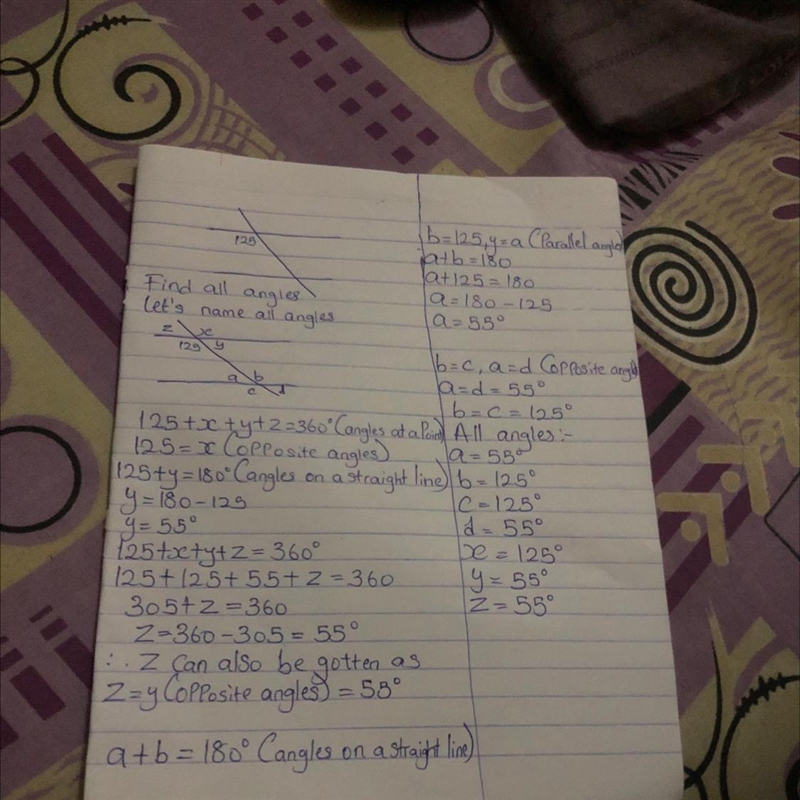 125
Find all angles
Let's name all angles
z x
125 y
a b
c d
125+x+y+z=360° (angles at a Point)
125=x (opposite angles)
125+y=180° (angles on a straight line)
y=180-125
y=55°
125+x+y+z=360°
125+125+55+z=360
305+z=360
z=360-305=55°
∴ z can also be gotten as
z=y (opposite angles) = 55°
a+b=180° (angles on a straight line)
b=125, y=a (Parallel angles)
a+b=180
a+125=180
a=180-125
a=55°
b=c, a=d (opposite angle
a=d=55°
b=c=125°
All angles:-
a=55°
b=125°
c=125°
d=55°
x=125°
y=55°
z=55°